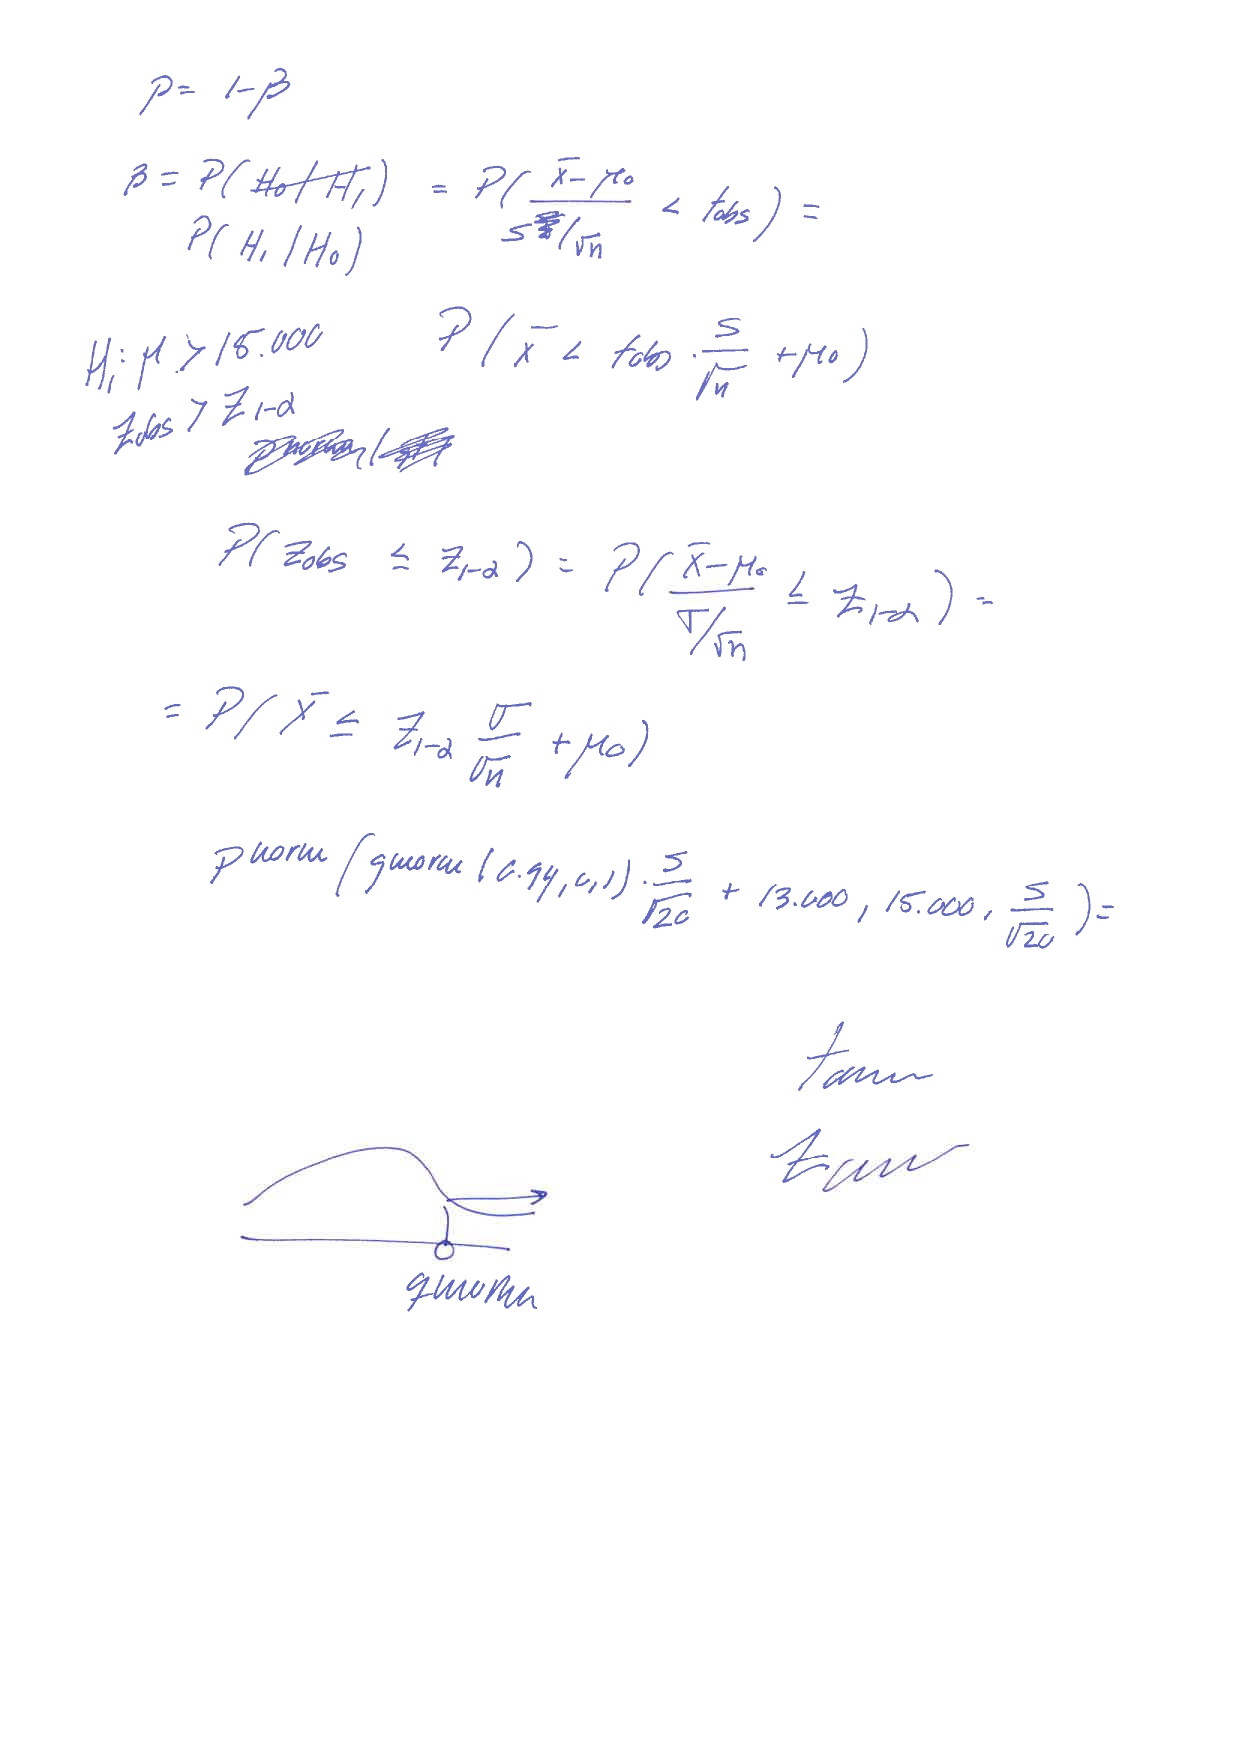 p = 1-β
β = P( H₀/H₁ ) = P( (x̄-μ₀)/(s/√n) < tobs ) =
P( H₁ / H₀ )
H₁: μ > 15.000 P( x̄ < tobs · s/√n + μ₀ )
zobs > z1-α
P( zobs ≤ z1-α ) = P( (x̄-μ₀)/(σ/√n) ≤ z1-α ) =
= P( x̄ ≤ z1-α σ/√n + μ₀ )
pnorm ( qnorm ( 0.94, 0, 1 ) · s/√20 + 13.000, 15.000, s/√20 ) =
qnorm